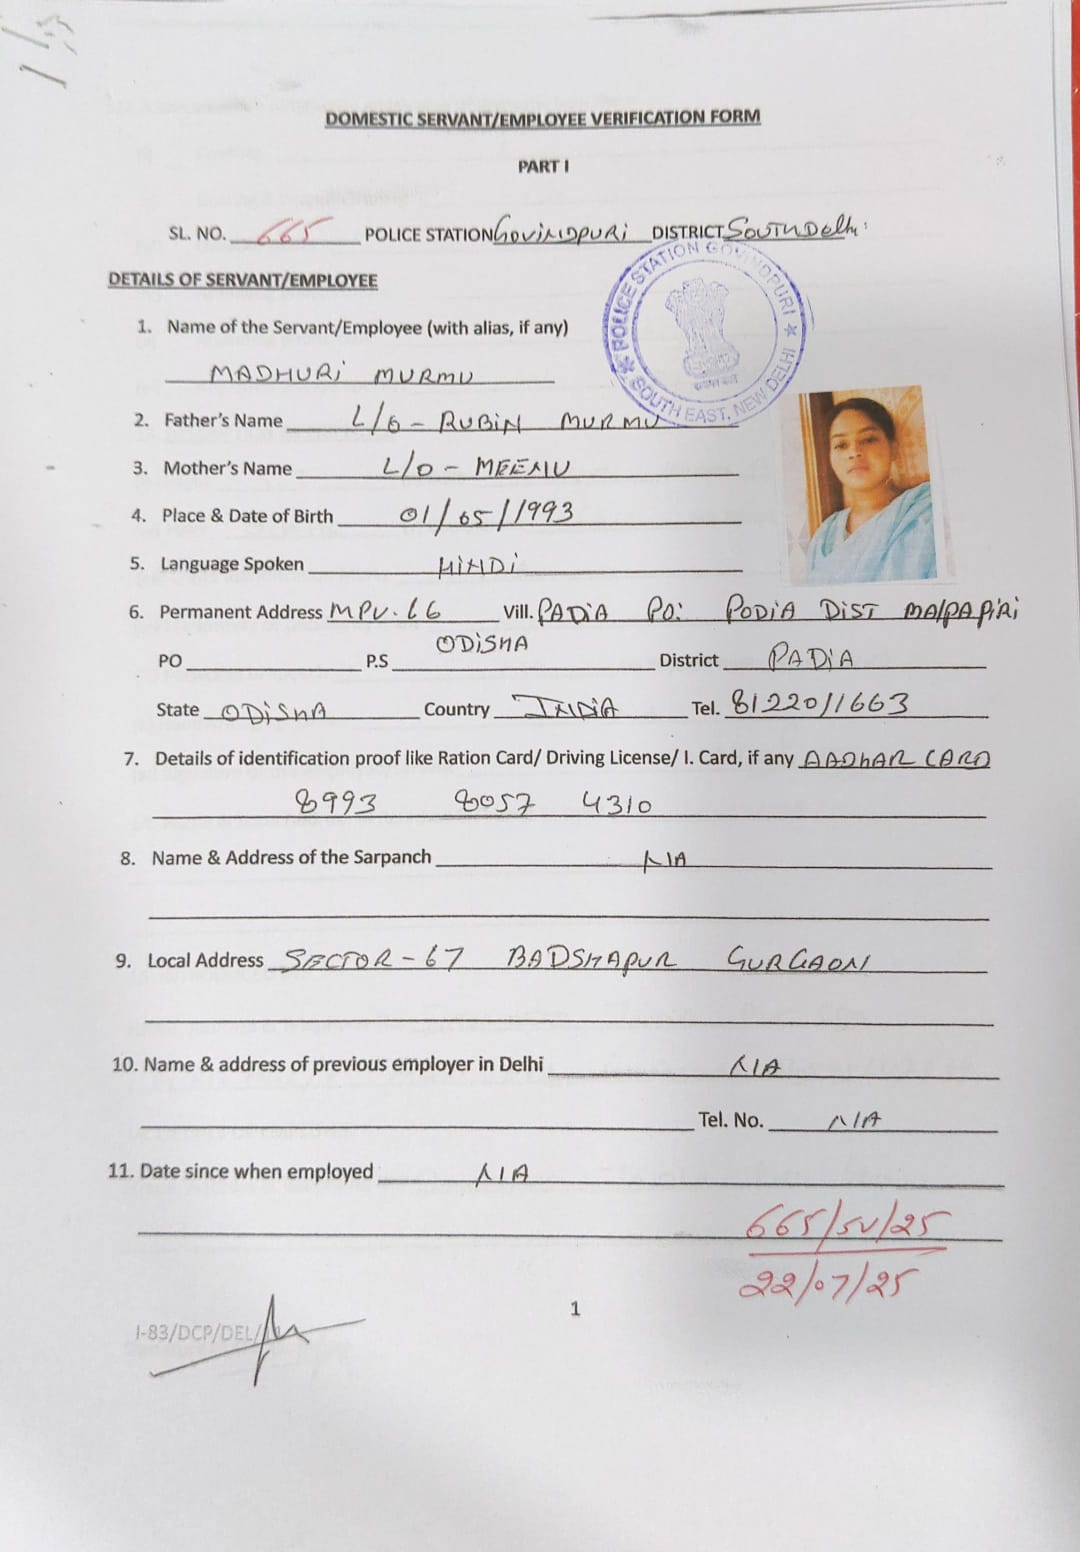 DOMESTIC SERVANT/EMPLOYEE VERIFICATION FORM
PART I
SL. NO. 665 POLICE STATION GOVINDPURI DISTRICT SOUTH Delhi
POLICE STATION GOVINDPURI
SOUTH EAST, NEW DELHI
DETAILS OF SERVANT/EMPLOYEE
1. Name of the Servant/Employee (with alias, if any)
MADHURI MURMU
2. Father's Name RUBIN MURMU
3. Mother's Name MEENU
4. Place & Date of Birth 01/05/1993
5. Language Spoken HINDI
6. Permanent Address MPV. Vill. PADIA PO: PODIA DIST
ODISHA
PO P.S District PADIA
State ODISHA Country INDIA Tel. 8122011663
7. Details of identification proof like Ration Card/ Driving License/ I. Card, if any AADHAR CARD
8993 8057 4310
8. Name & Address of the Sarpanch N/A
9. Local Address SECTOR-67 BADSHAPUR GURGAON
10. Name & address of previous employer in Delhi N/A
Tel. No. N/A
11. Date since when employed N/A
665/SV/25
22/07/25
1
I-83/DCP/DEL/